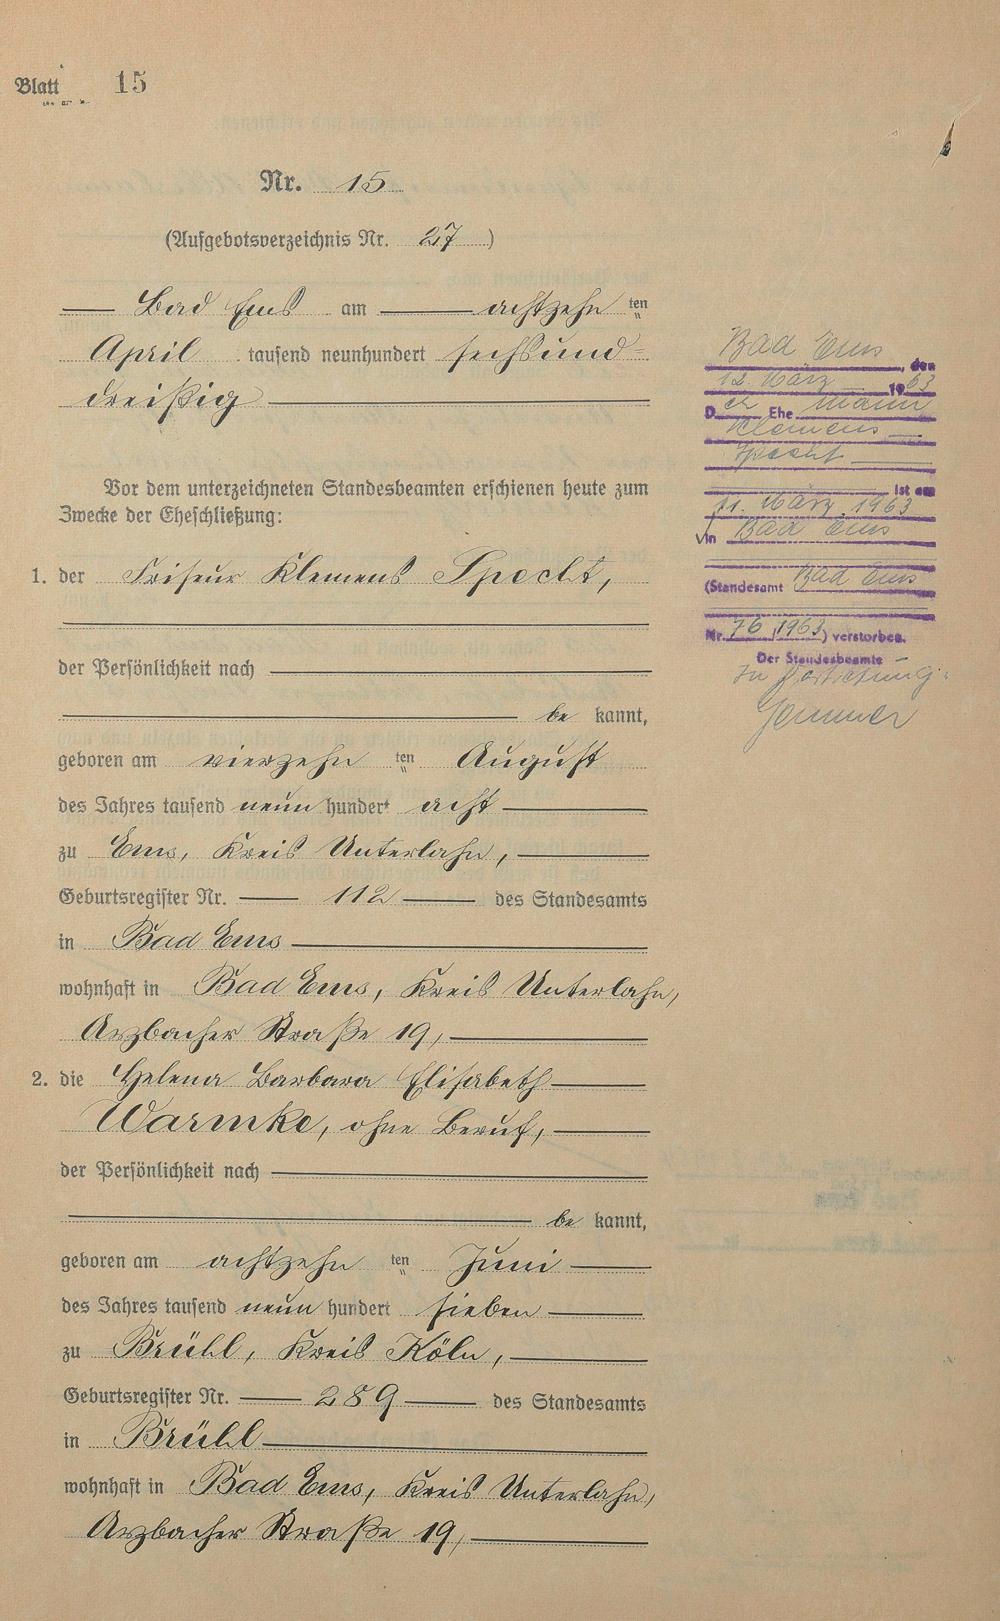 Blatt 15
Nr. 15
(Aufgebotsverzeichnis Nr. 27)
Bad Ems am achtzehn ten
April tausend neunhundert sechsund-
dreißig
Vor dem unterzeichneten Standesbeamten erschienen heute zum
Zwecke der Eheschließung:
1. der Friseur Klemens Specht,
der Persönlichkeit nach
be kannt,
geboren am vierzehn ten August
des Jahres tausend neun hundert acht
zu Ems, Kreis Unterlahn,
Geburtsregister Nr. 112 des Standesamts
in Bad Ems
wohnhaft in Bad Ems, Kreis Unterlahn,
Arzbacher Straße 19,
2. die Helena Barbara Elisabeth
Warmke, ohne Beruf,
der Persönlichkeit nach
be kannt,
geboren am achtzehn ten Juni
des Jahres tausend neun hundert sieben
zu Brühl, Kreis Köln,
Geburtsregister Nr. 289 des Standesamts
in Brühl
wohnhaft in Bad Ems, Kreis Unterlahn,
Arzbacher Straße 19,
Bad Ems, den
12. März 1963
D er Ehe mann
Klemens
Specht
ist am
11. März 1963
in Bad Ems
(Standesamt Bad Ems
Nr. 76/1963) verstorben.
Der Standesbeamte
In Vertretung: